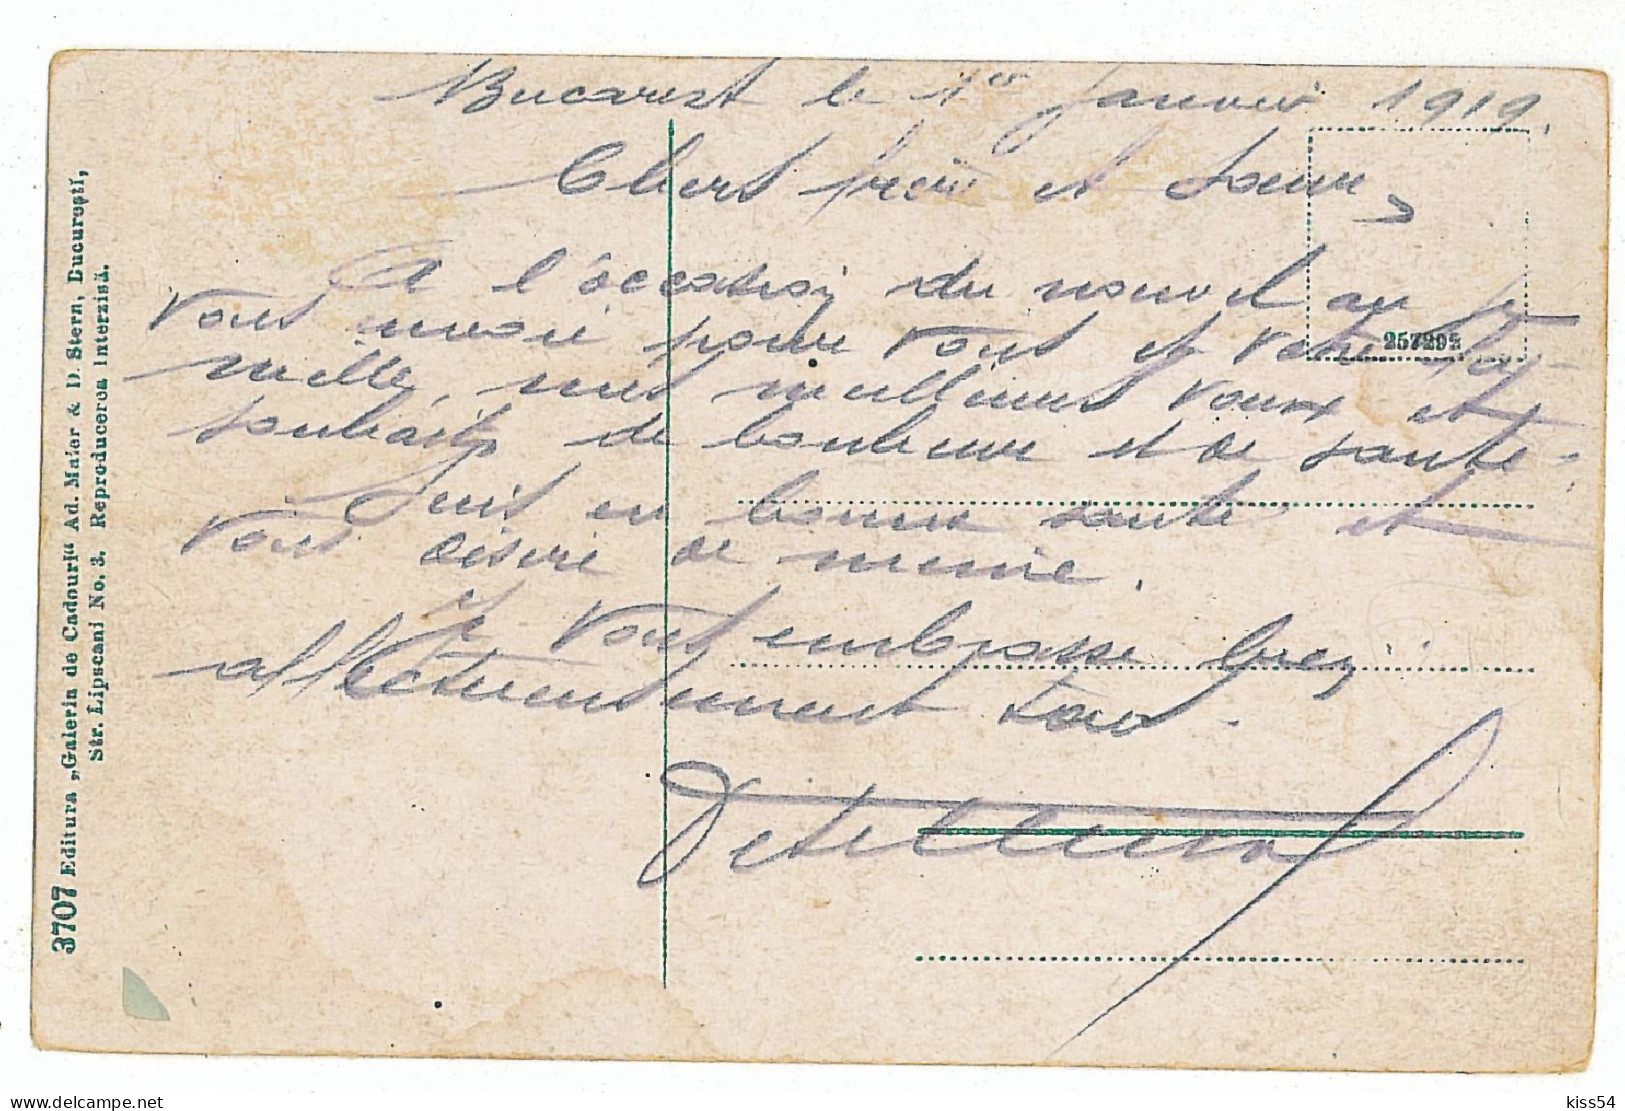 Bucarest le 1er Janvier 1919.
Chers frère et Soeur,
A l'occasion du nouvel an je
vous envoie pour vous et votre fa-
mille, mes meilleurs voeux et
souhaits de bonheur et de santé.
Suis en bonne santé et
vous désire de meme.
Je vous embrasse bien
affectueusement tous.
257292
3707 Editura „Galeria de Cadouri“ Ad. Maier & D. Stern, Bucureşti,
Str. Lipscani No. 3. Reproducerea interzisă.
delcampe.net
kiss54